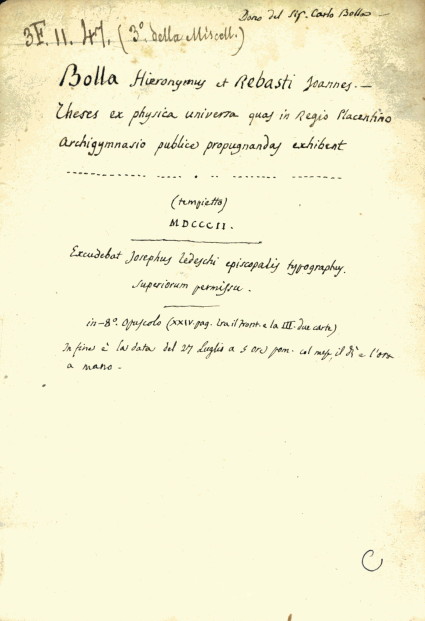 Dono del Sig. Carlo Bolla
3F. 11. 47. (3º della Miscell.)
Bolla Hieronymus et Rebasti Joannes. —
Theses ex physica universa quas in Regio Placentino
Archigymnasio publice propugnandas exhibent
(tempietto)
MDCCCII.
Excudebat Josephus Tedeschi episcopalis typographus.
Superiorum permissu.
in-8º. Opuscolo (XXIV. pag. tra il front. e la III. due carte)
In fine è la data del 27 Luglio a 5 ore pom. col mese, il dì e l'ora
a mano.
C